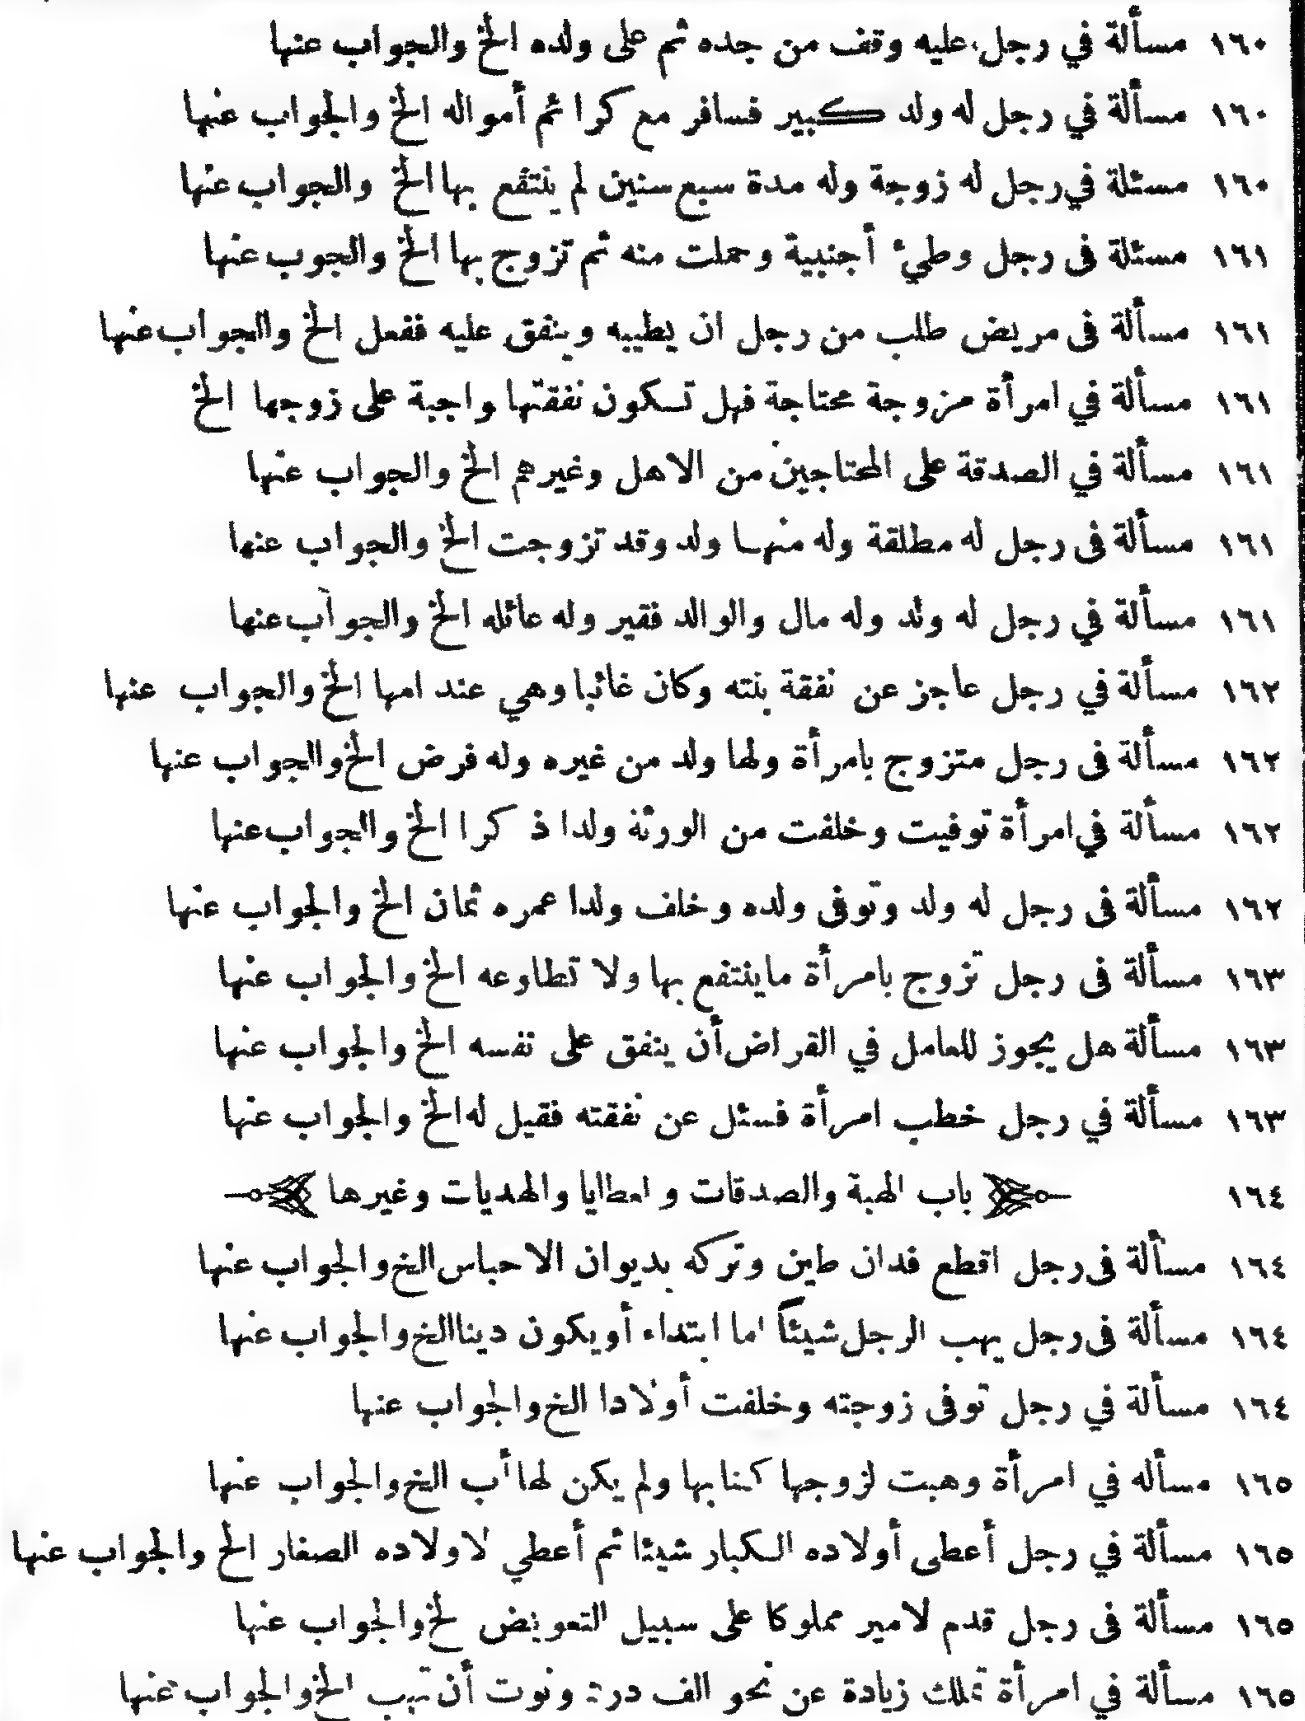 ١٦٠ مسألة في رجل عليه وقف من جده ثم على ولده الخ والجواب عنها
١٦٠ مسألة في رجل له ولد كبير فسافر مع كرا ثم أمواله الخ والجواب عنها
١٦٠ مسئلة في رجل له زوجة وله مدة سبع سنين لم ينتفع بها الخ والجواب عنها
١٦١ مسئلة فى رجل وطيء أجنبية وحملت منه ثم تزوج بها الخ والجوب عنها
١٦١ مسألة فى مريض طلب من رجل ان يطيبه وينفق عليه ففعل الخ والجواب عنها
١٦١ مسألة في امرأة مزوجة محتاجة فهل تكون نفقتها واجبة على زوجها الخ
١٦١ مسألة في الصدقة على المحتاجين من الاهل وغيرهم الخ والجواب عنها
١٦١ مسألة فى رجل له مطلقة وله منها ولد وقد تزوجت الخ والجواب عنها
١٦١ مسألة في رجل له ولد وله مال والوالد فقير وله عائله الخ والجواب عنها
١٦٢ مسألة في رجل عاجز عن نفقة بنته وكان غائبا وهي عند امها الخ والجواب عنها
١٦٢ مسألة فى رجل متزوج بامرأة ولها ولد من غيره وله فرض الخ والجواب عنها
١٦٢ مسألة في امرأة توفيت وخلفت من الورثة ولدا ذكرا الخ والجواب عنها
١٦٢ مسألة فى رجل له ولد وتوفى ولده وخلف ولدا عمره ثمان الخ والجواب عنها
١٦٣ مسألة فى رجل تزوج بامرأة ماينتفع بها ولا تطاوعه الخ والجواب عنها
١٦٣ مسألة هل يجوز للعامل في القراض أن ينفق على نفسه الخ والجواب عنها
١٦٣ مسألة في رجل خطب امرأة فسئل عن نفقته فقيل له الخ والجواب عنها
١٦٤ باب الهبة والصدقات و العطايا والهديات وغيرها
١٦٤ مسألة فى رجل اقطع فدان طين وتركه بديوان الاحباس الخ والجواب عنها
١٦٤ مسألة فى رجل يهب الرجل شيئاً اما ابتداء أويكون دينا الخ والجواب عنها
١٦٤ مسألة في رجل توفى زوجته وخلفت أولادا الخ والجواب عنها
١٦٥ مسأله في امرأة وهبت لزوجها كتابها ولم يكن لها أب الخ والجواب عنها
١٦٥ مسألة في رجل أعطى أولاده الكبار شيئا ثم أعطي لاولاده الصغار الخ والجواب عنها
١٦٥ مسألة فى رجل قدم لامير مملوكا على سبيل التعويض الخ والجواب عنها
١٦٥ مسألة في امرأة تملك زيادة عن نحو الف درهم ونوت أن تهب الخ والجواب عنها